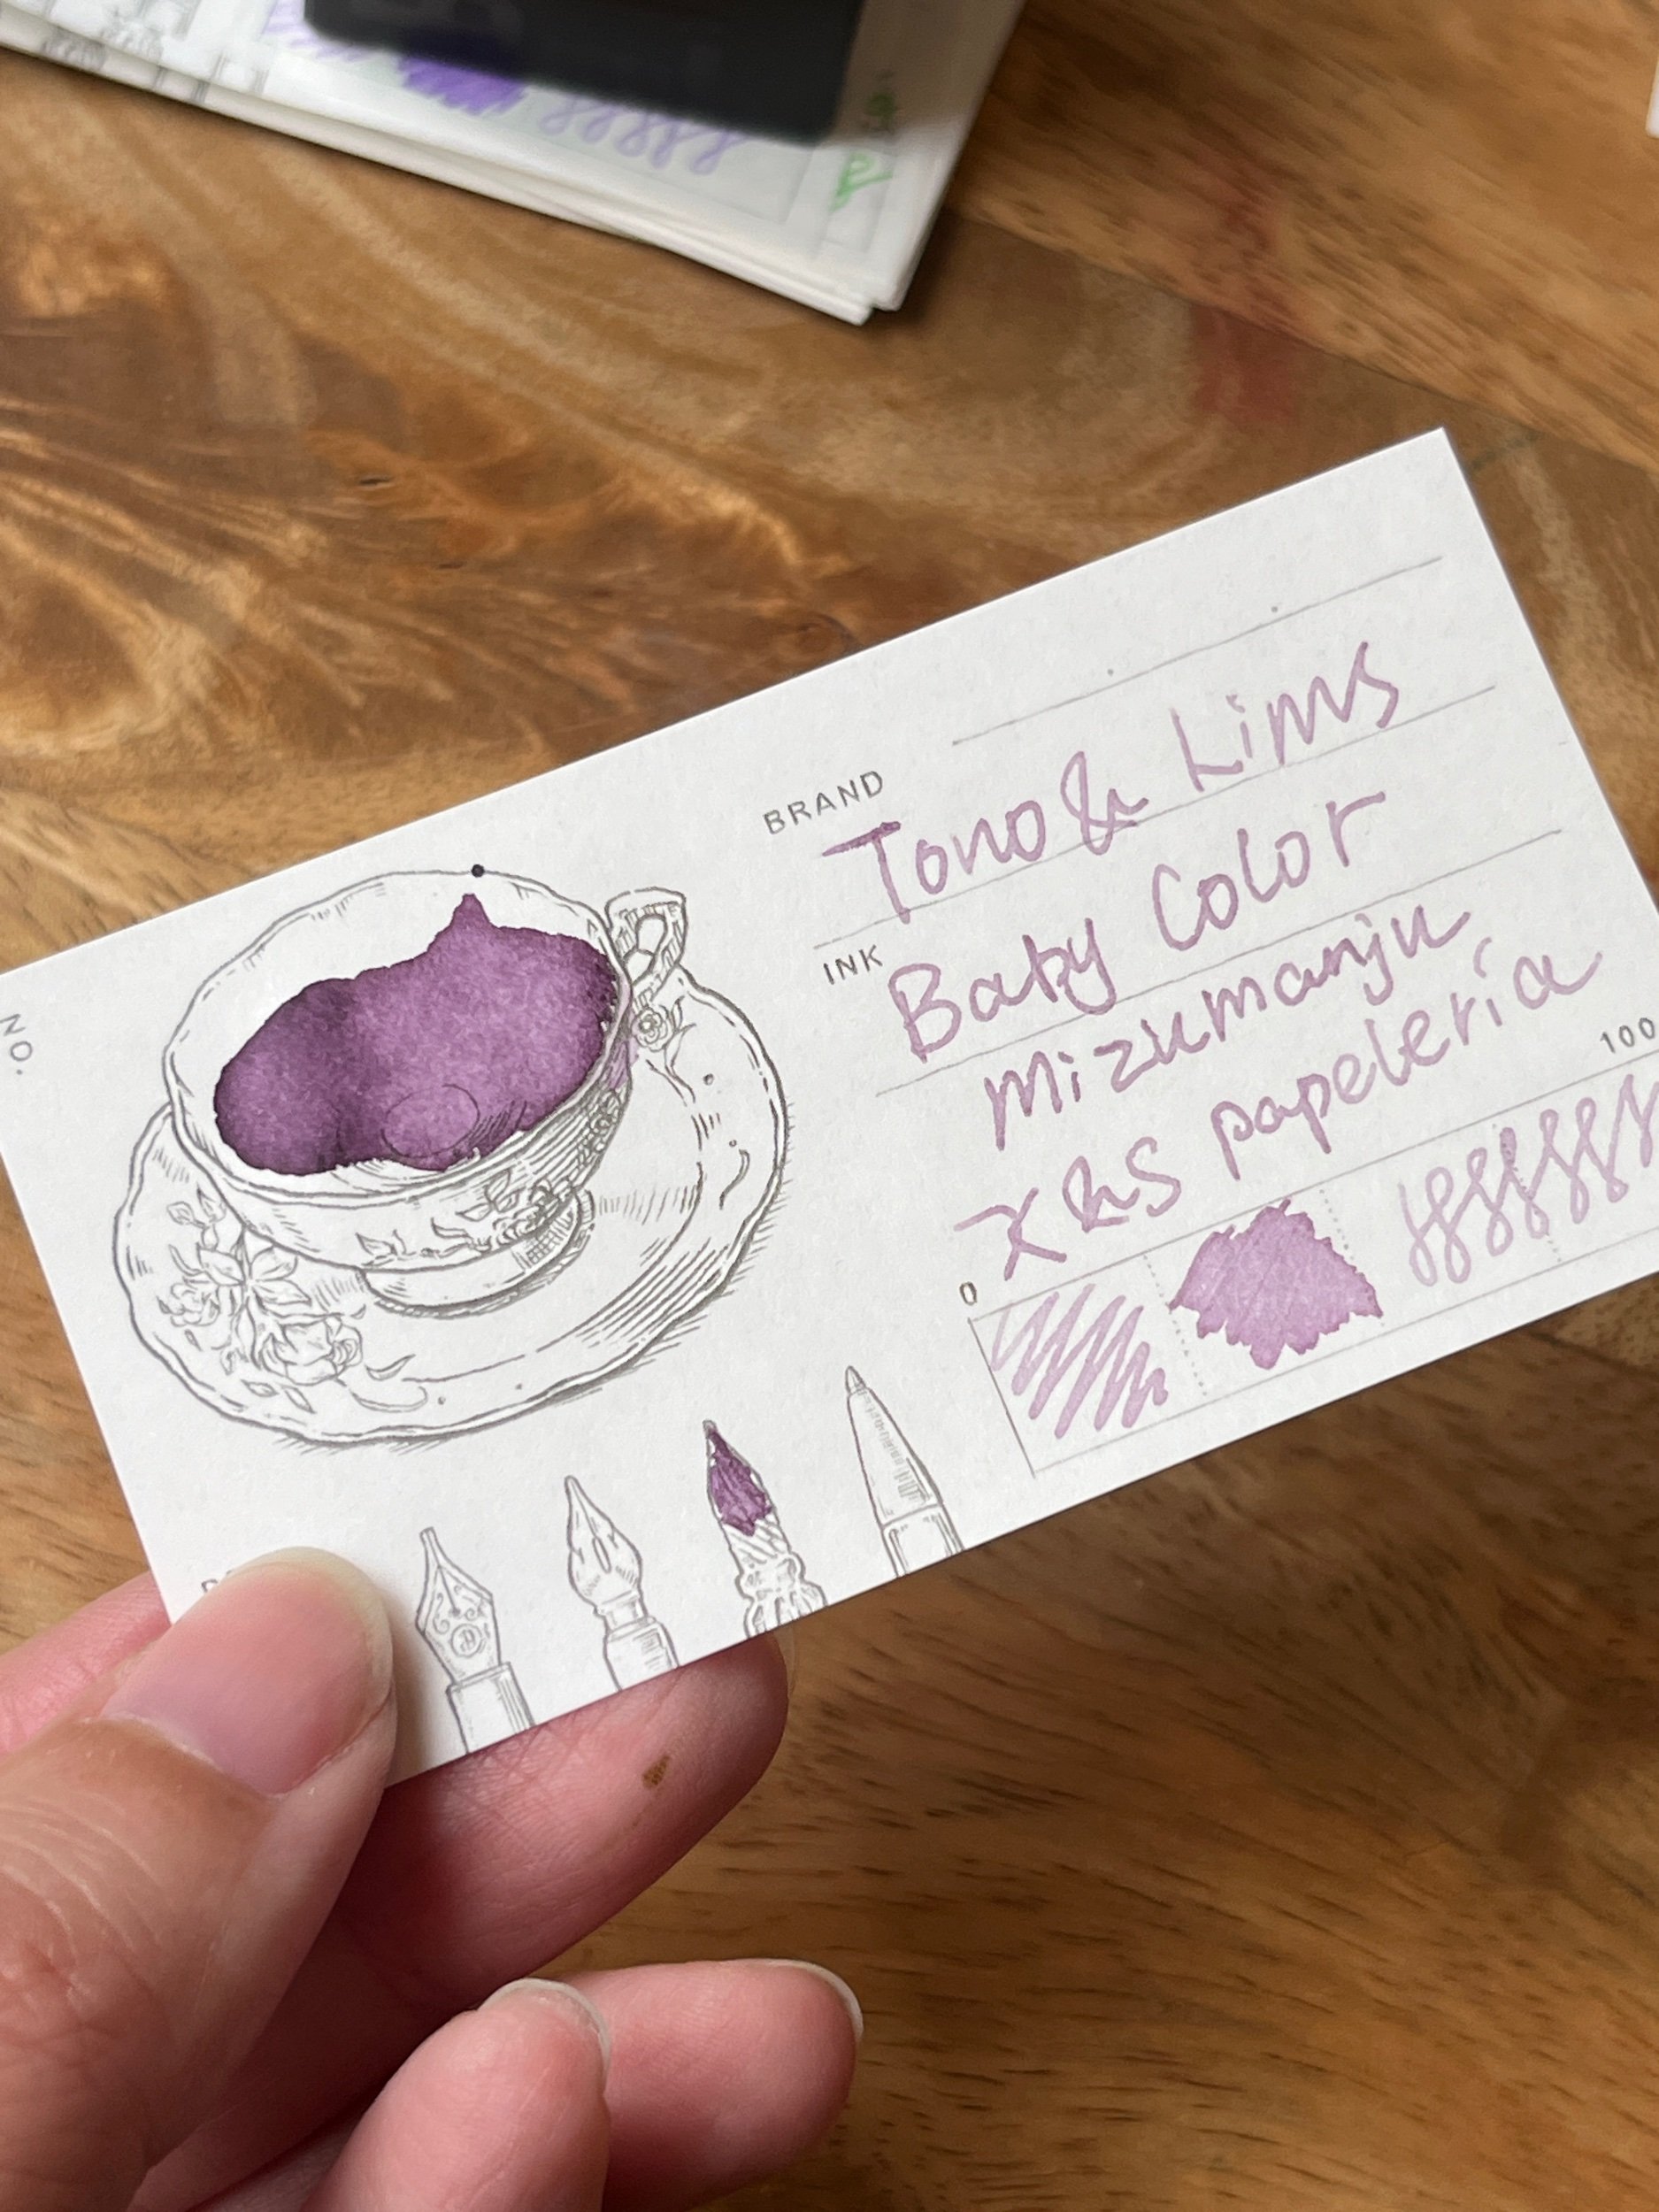 NO.
BRAND
Tono & Lims
INK
Baby Color
mizumanju
x&S papelería
0
100